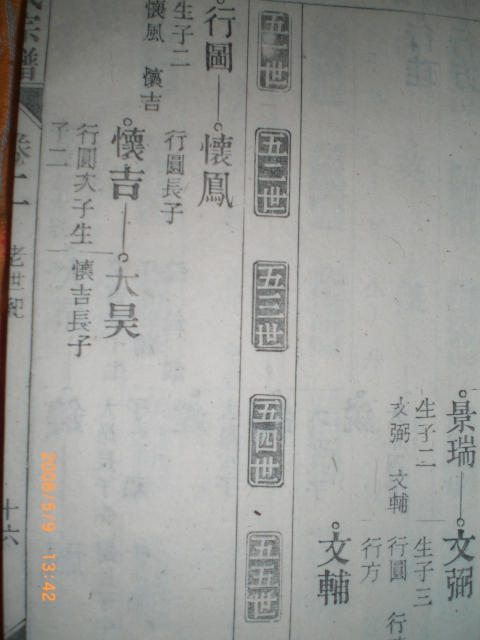 景瑞
生子二
文弼 文輔
文弼
生子三
行圓 行
行方
文輔
五一世 五二世 五三世 五四世 五五世
行圖
生子二
懷風 懷吉
懷鳳
行圓長子
懷吉
行圓次子生
子二
大昊
懷吉長子
氏宗譜 卷二 老世紀 十六
2008/5/9 13:42